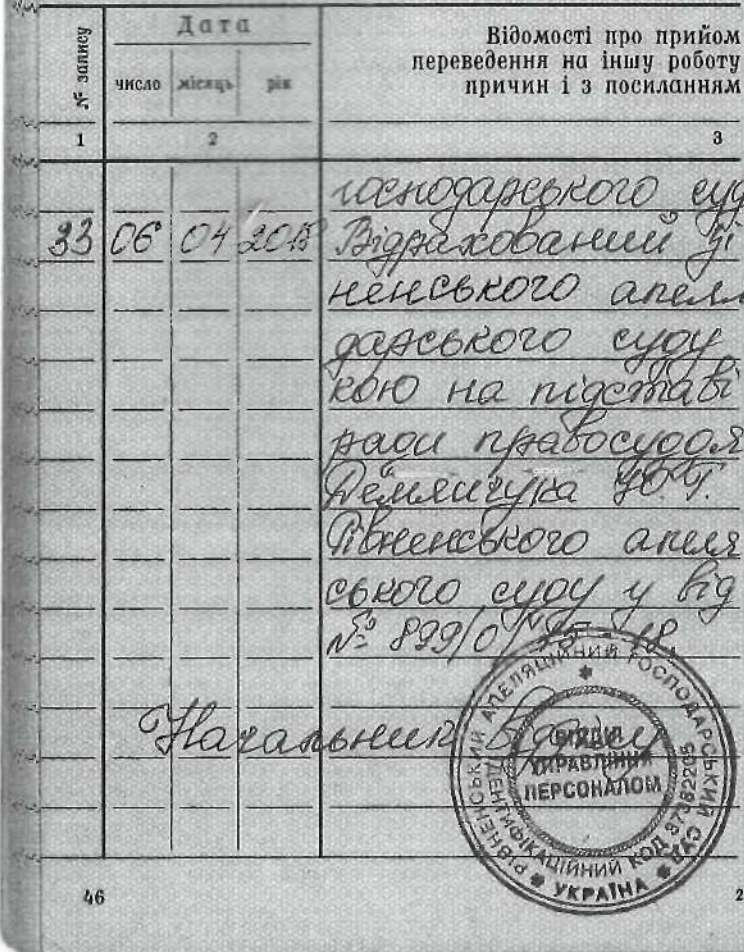 № запису
Дата
число місяць рік
Відомості про прийом
переведення на іншу роботу
причин і з посиланням
1 2 3
господарського суд
33 06 04 2018 Відрахований зі
ненського апел
дарського суду
кою на підставі
ради правосуддя
Демянчука Ю.Г.
Рівненського апеля
ського суду у від
№ 899/0/15-18.
Начальник відділу
РІВНЕНСЬКИЙ АПЕЛЯЦІЙНИЙ ГОСПОДАРСЬКИЙ СУД
ІДЕНТИФІКАЦІЙНИЙ КОД 37382205
ВІДДІЛ
УПРАВЛІННЯ
ПЕРСОНАЛОМ
УКРАЇНА
46 2